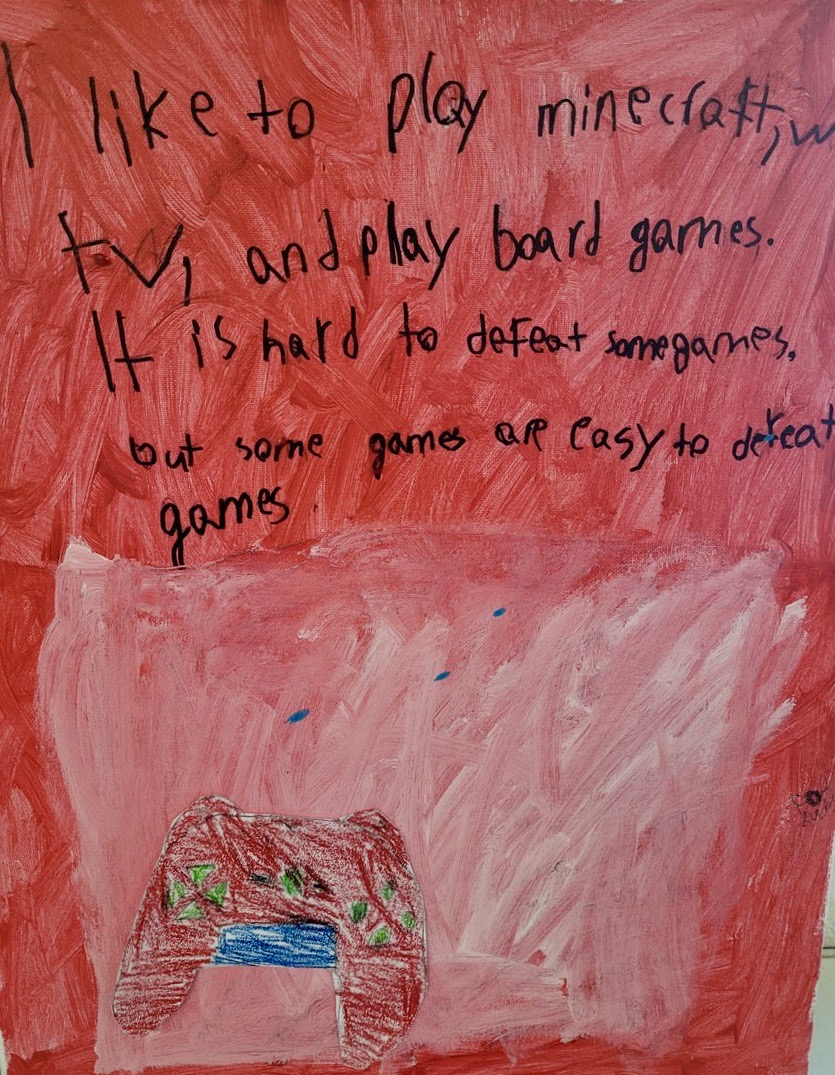 I like to play minecraft,
tv, and play board games.
It is hard to defeat some games.
but some games are easy to defeat
games